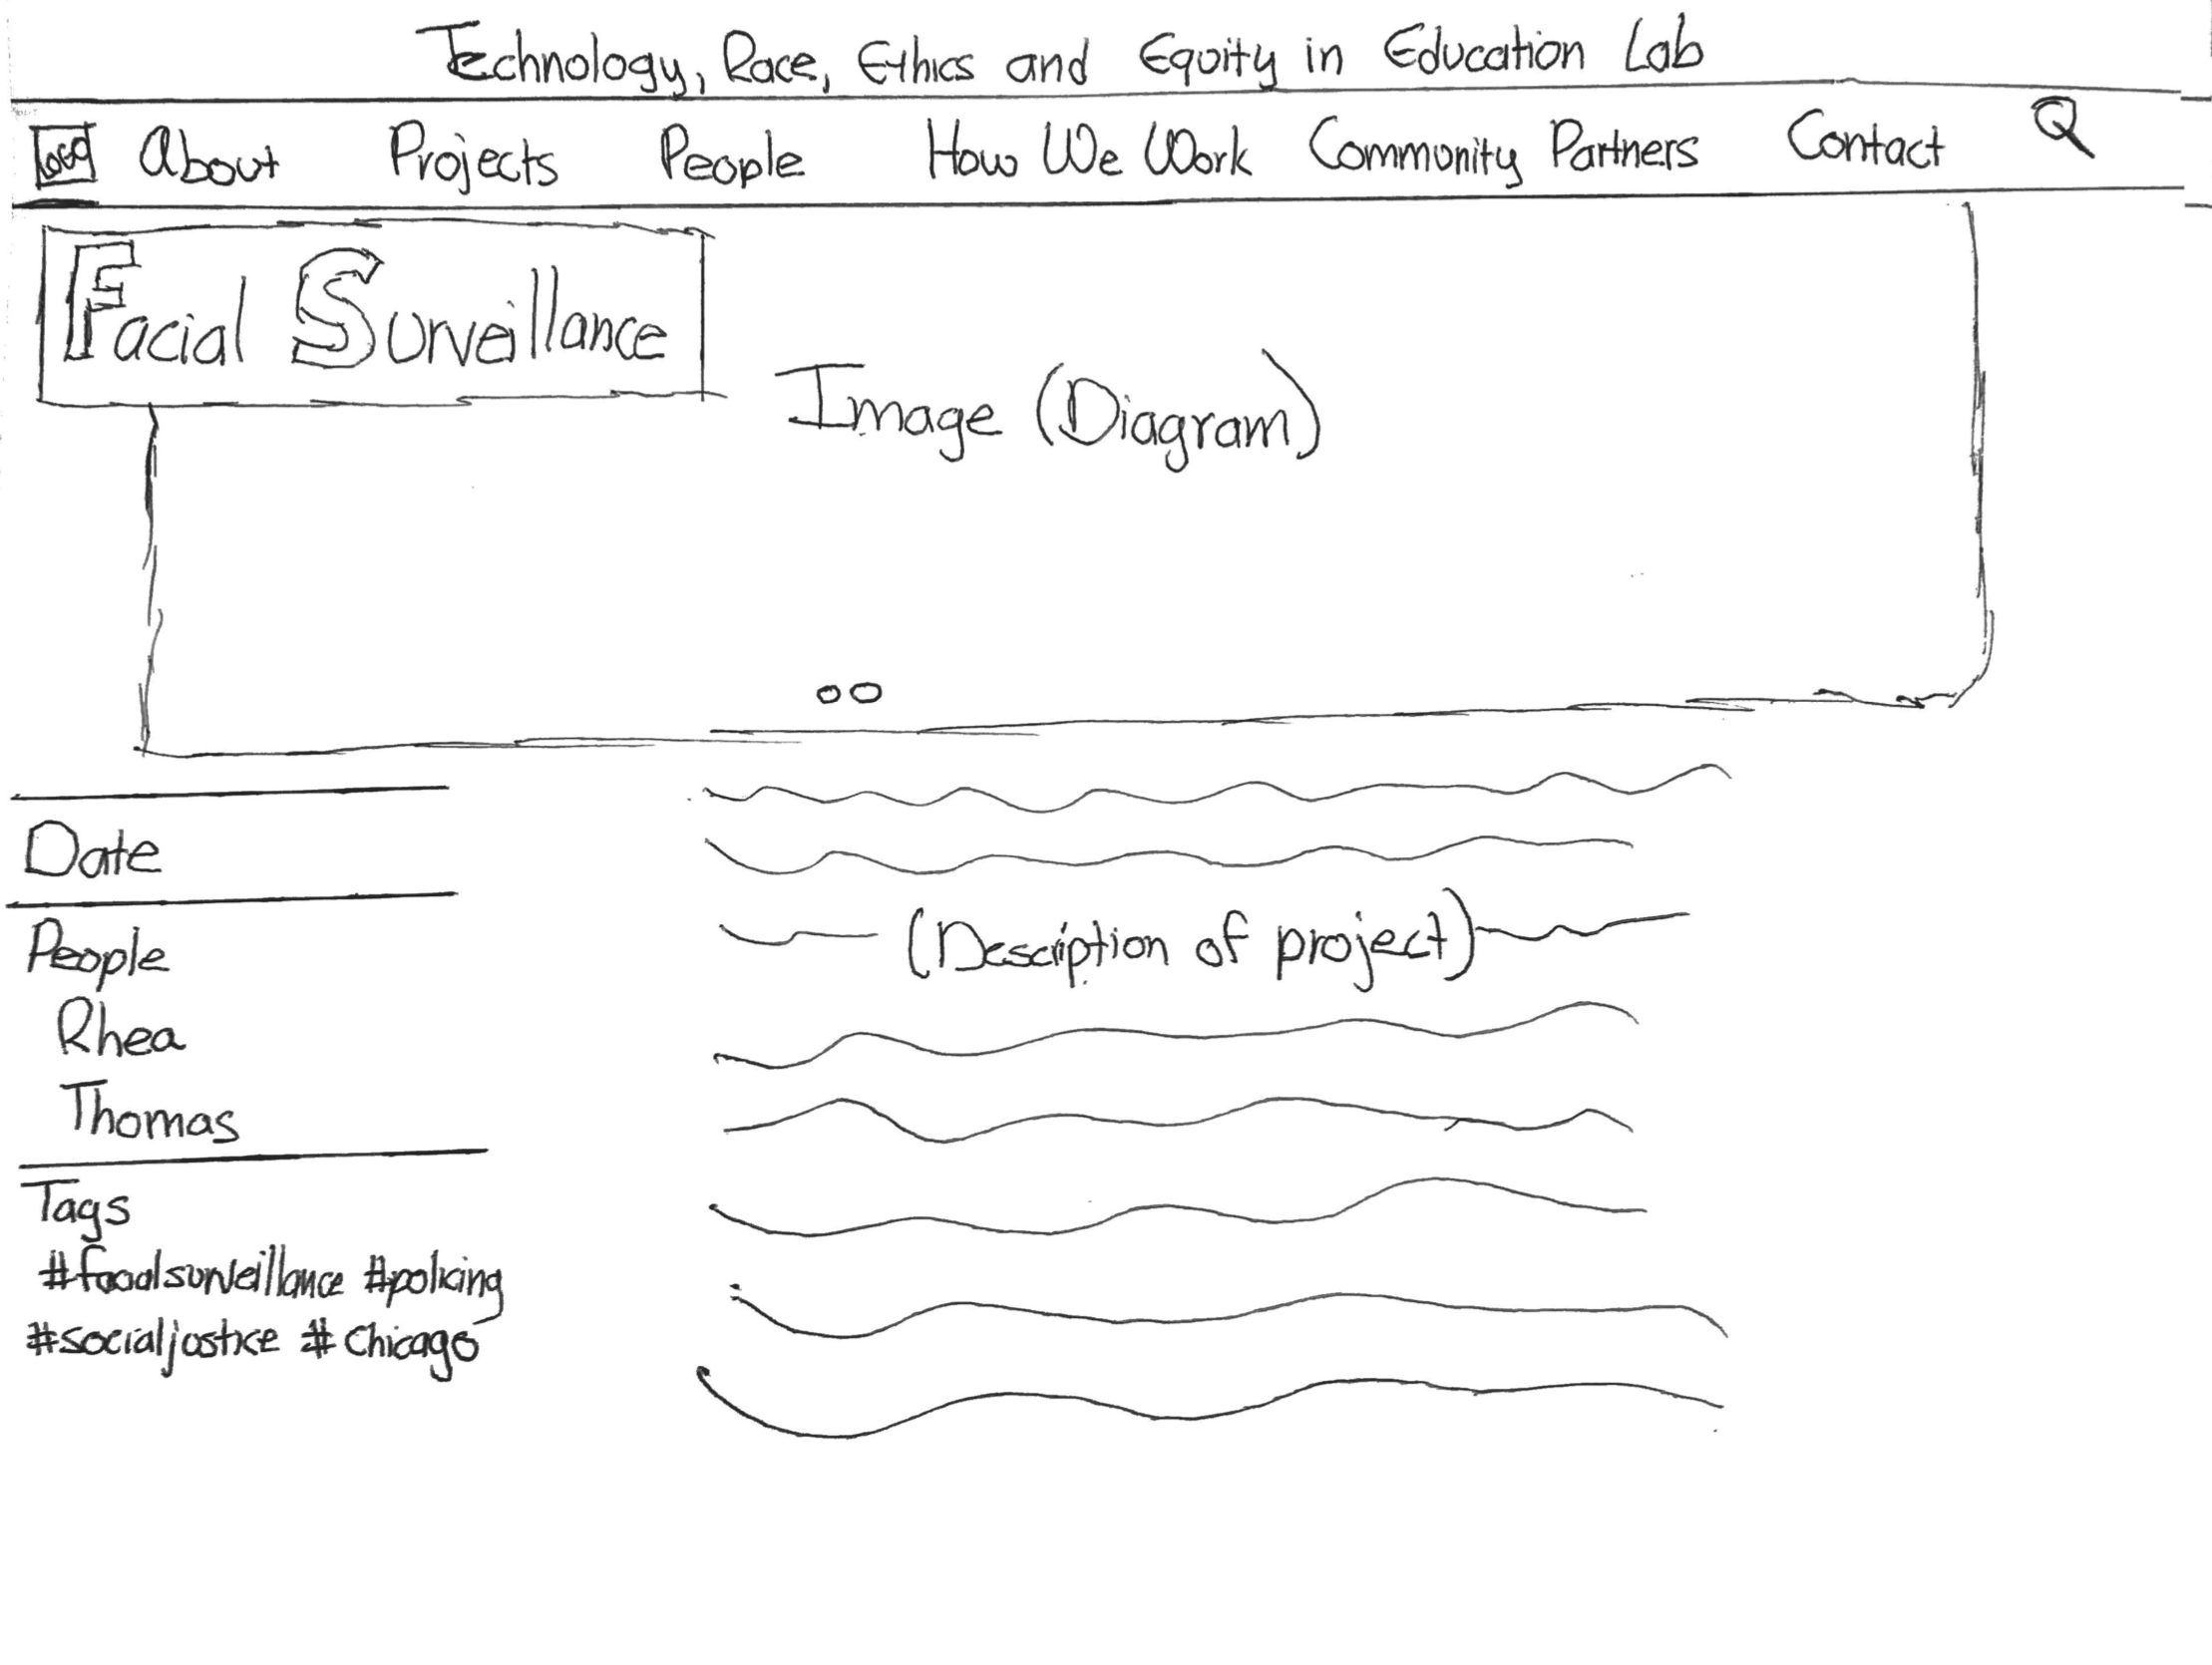 Technology, Race, Ethics and Equity in Education Lab
Logo About Projects People How We Work Community Partners Contact
Facial Surveillance
Image (Diagram)
Date
(Description of project)
People
Rhea
Thomas
Tags
#facialsurveillance #policing
#socialjustice #Chicago